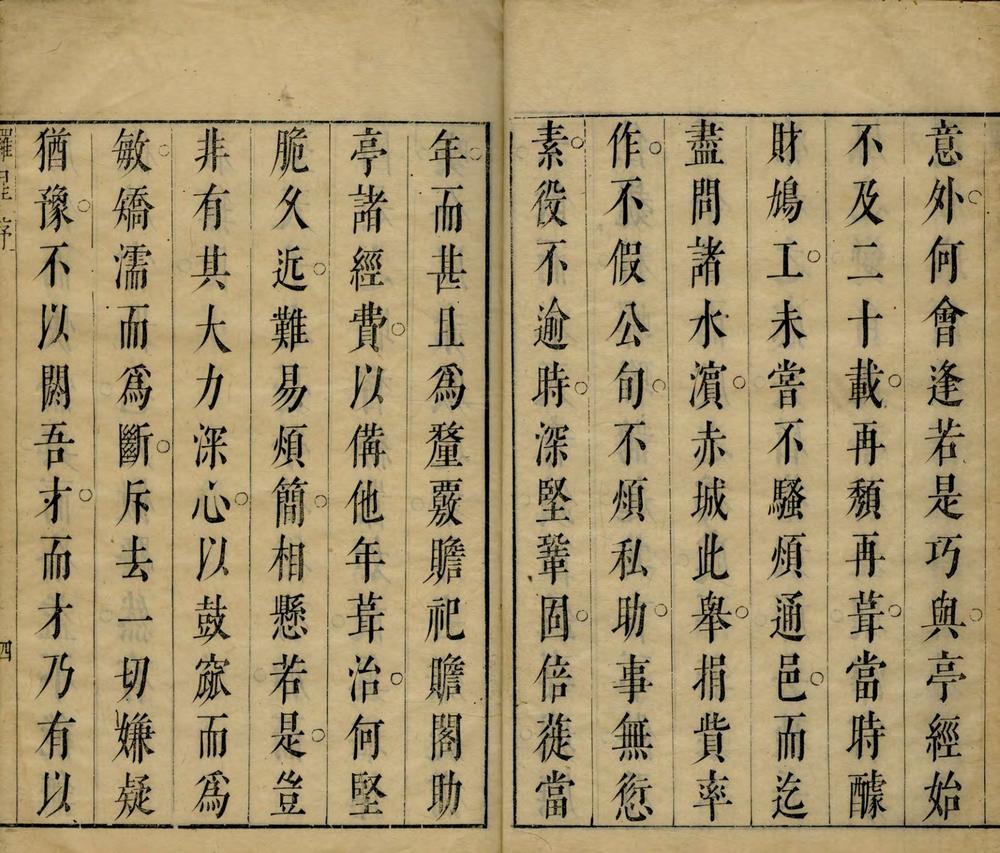 意外何會逢若是巧與亭經始
不及二十載再頽再葺當時醵
財鳩工未嘗不騷煩通邑而迄
盡問諸水濵赤城此舉捐貲率
作不假公句不煩私助事無愆
素役不逾時深堅鞏固倍蓰當
年而甚且爲釐覈贍祀贍閣助
亭諸經費以備他年葺治何堅
脆久近難易煩簡相懸若是豈
非有其大力深心以鼓竄而爲
敏矯濡而爲斷斥去一切嫌疑
猶豫不以閼吾才而才乃有以
羅星序
四